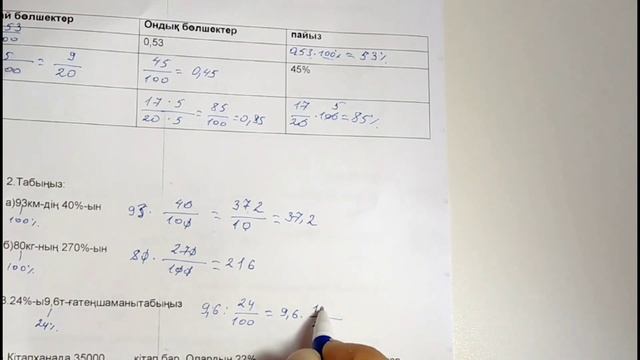 й бөлшектер Ондық бөлшектер пайыз
53/100 0,53 0,53·100% = 53%
5/100 = 9/20 45/100 = 0,45 45%
17·5/20·5 = 85/100 = 0,85 17/20·100 = 85% 5
2.Табыңыз:
а)93км-дің 40%-ын 93· 40/100 = 372/10 = 37,2
100%
б)80кг-ның 270%-ын 80· 270/100 = 216
100%
3.24%-ы9,6т-ғатеңшаманытабыңыз 9,6 : 24/100 = 9,6 · 1
24%
Кітапханада 35000 кітап бар. Олардың 22%